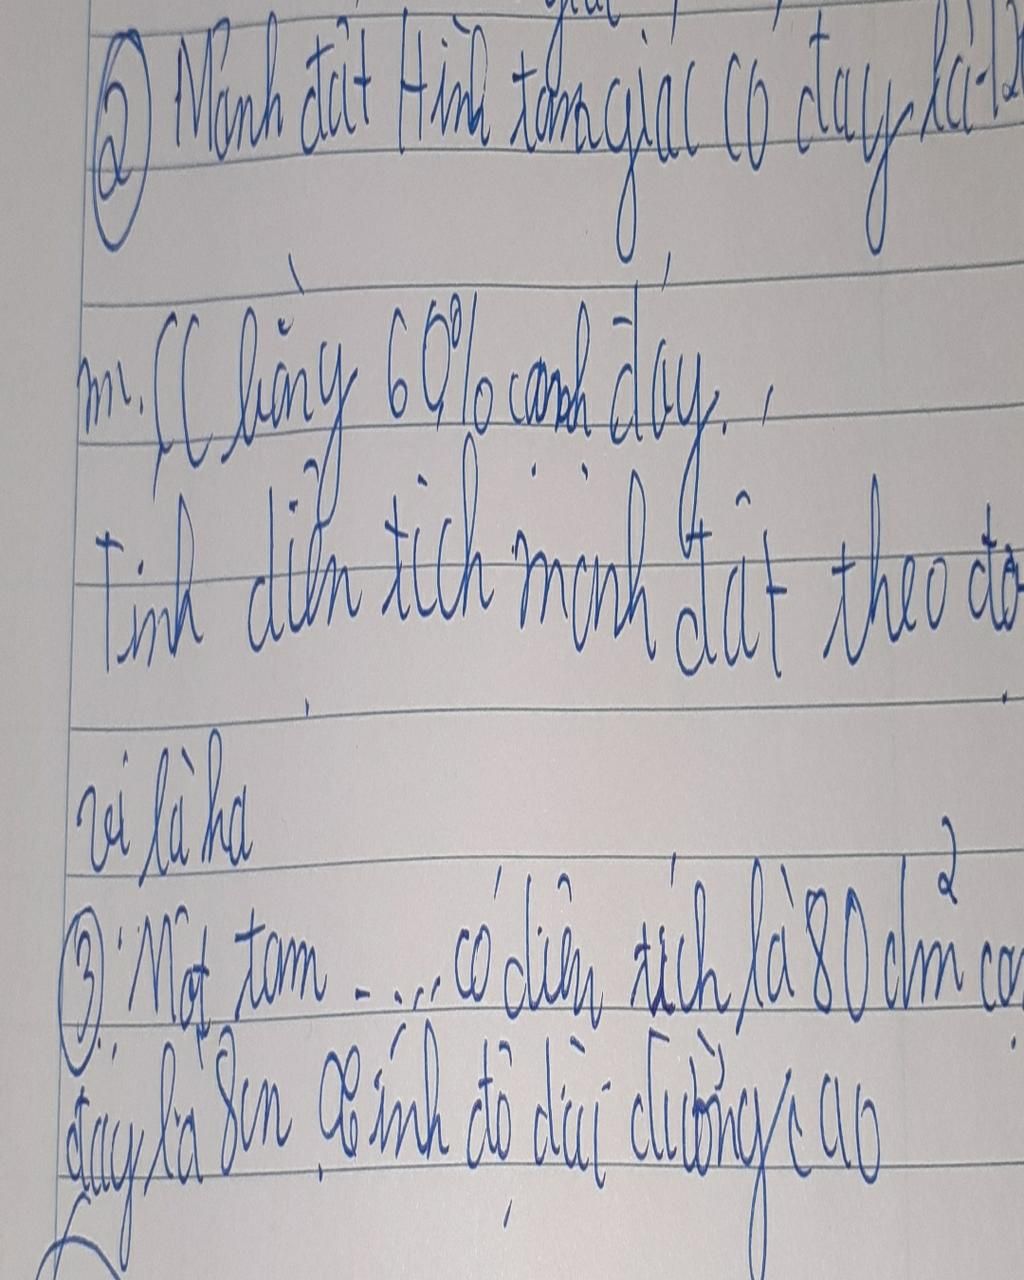 ② Mảnh đất Hình tam giác có đáy là 12
m. CC bằng 60% cạnh đáy.
Tính diện tích mảnh đất theo đơ
vị là ha
③. Một tam .... có diện tích là 80 dm² cạ
đáy là 8m Tính độ dài đường cao